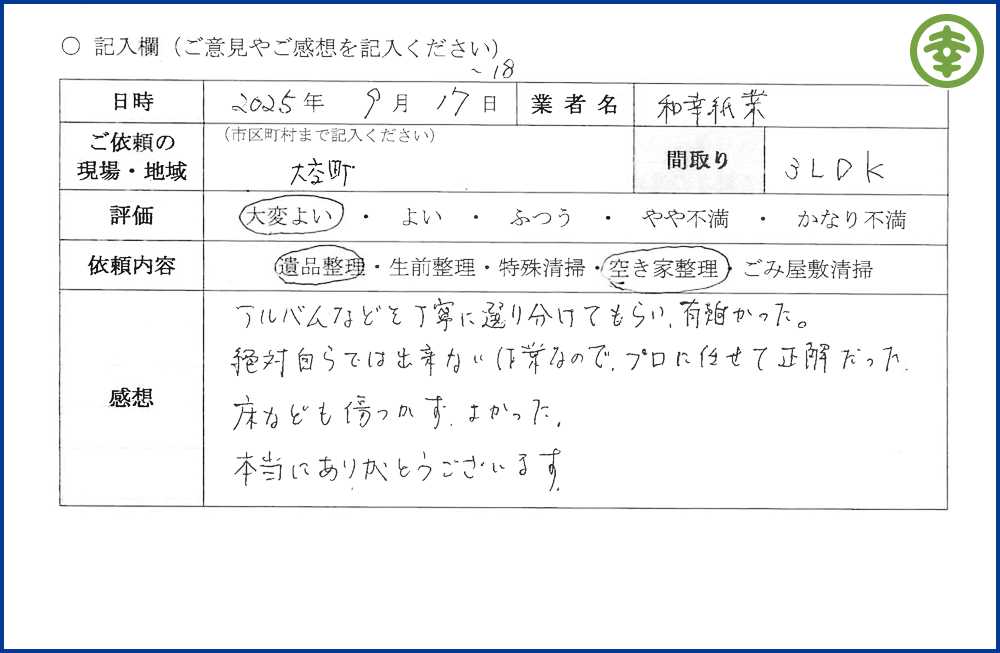 ○ 記入欄（ご意見やご感想を記入ください）
～18
日時 2025年 9月 17日 業者名 和幸紙業
ご依頼の現場・地域 （市区町村まで記入ください） 大空町 間取り 3LDK
評価 大変よい ・ よい ・ ふつう ・ やや不満 ・ かなり不満
依頼内容 遺品整理・生前整理・特殊清掃・空き家整理・ごみ屋敷清掃
感想
アルバムなどを丁寧に選り分けてもらい、有難かった。
絶対自らでは出来ない作業なので、プロに任せて正解だった.
床なども傷つかず、よかった.
本当にありがとうございます.
幸